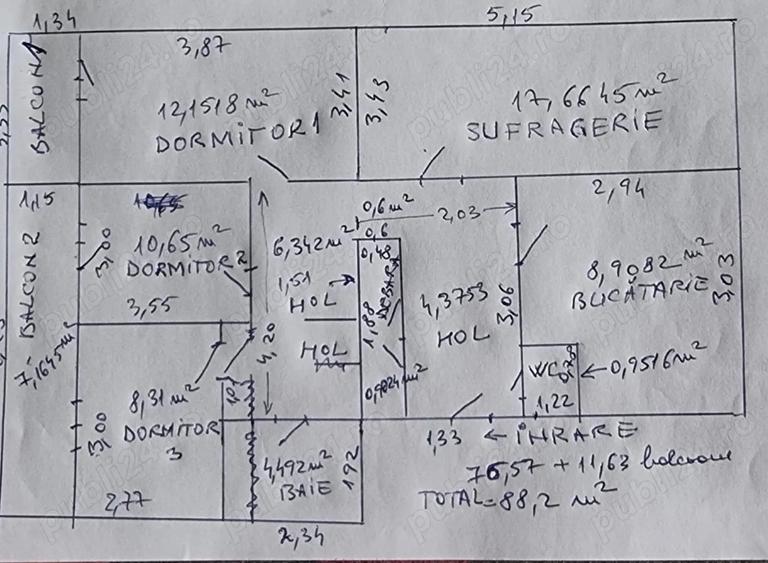 1,34
5,15
3,87
BALCON 1
12,1518 m²
DORMITOR 1
3,41
3,43
17,6645 m²
SUFRAGERIE
1,15
BALCON 2
7,1645 m²
3,00
10,65 m²
DORMITOR 2
3,55
4,20
6,342 m²
1,51
HOL
HOL
0,6 m²
0,6
0,48
1,88
2,03
4,3753
HOL
3,06
2,94
8,9082 m²
BUCĂTARIE
3,03
WC
0,9516 m²
1,22
8,31 m²
DORMITOR
3
3,00
2,77
4,492 m²
BAIE
1,92
2,34
1,33 ← INRARE
76,57 + 11,63 balcoane
TOTAL = 88,2 m²